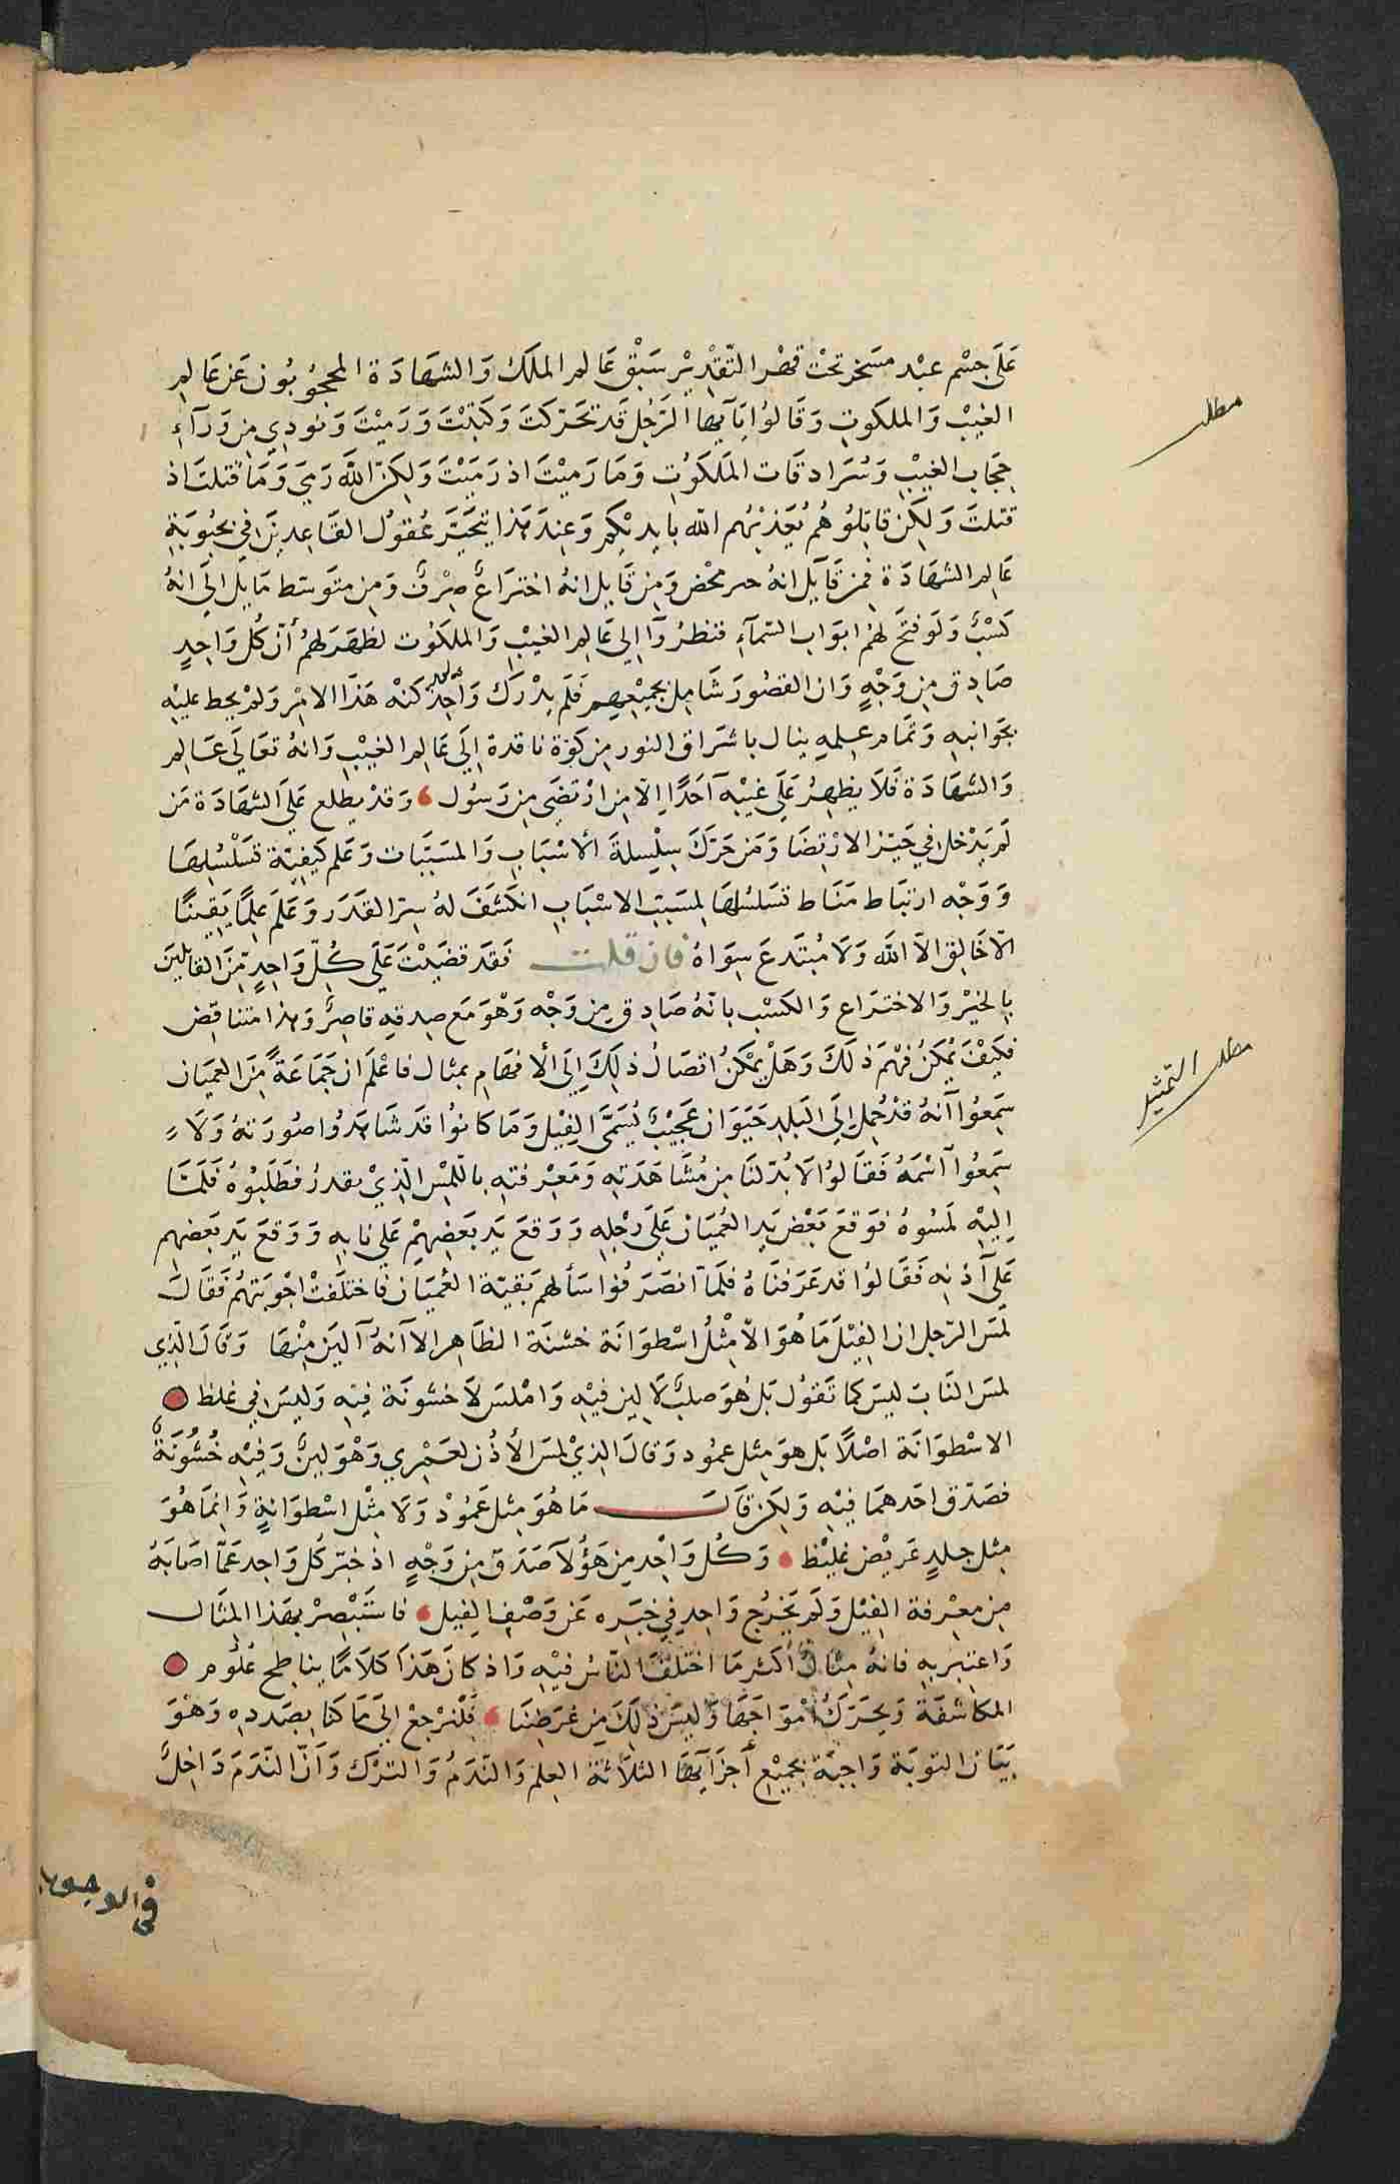 على جسم عبد مسخر تحت قهر التقدير سبق عالم الملك والشهادة المحجوبون عن عالم
مطلب
الغيب والملكوت وقالوا يآ ايها الرجل قد تحركت وكتبت ورميت ونودي من ورآء
حجاب الغيب وسرادقات الملكوت وما رميت اذ رميت ولكن الله رمى وما قتلت اذ
قتلت ولكن قاتلوهم يعذبهم الله بايديكم وعند هذا تتحير عقول القاعدين في بحبوبة
عالم الشهادة فمن قآيل انه حبر محض ومن قايل انه اختراع صرف ومن متوسط مايل الى انه
كسب ولو فتح لهم ابواب السمآء فنظروآ الي عالم الغيب والملكوت لظهر لهم أن كل واحد
صادق من وجه وان القصور شامل بجميعهم فلم يدرك وآحد كنه هذا الامر ولم يحط عليه
بجوانبه وتمام علمه ينال باشراق النور من كوة ناقدة إلى عالم الغيب وانه تعالى عالم
والشهادة فلا يظهر على غيبه آحدا إلا من ارتضى من رسول وقد يطلع على الشهادة من
لم يدخل في حيز الارتضا ومن حرك سلسلة الأسباب والمسببات وعلم كيفية تسلسلها
ووجه ارتباط مناط تسلسلها لمسبب الاسباب انكشف له سر القدر وعلم علما يقينا
الاخالق الا الله ولا مبتدع سواه فان قلت فقد قضيت على كل واحد من القايلين
بالخير والاختراع والكسب بانه صادق من وجه وهو مع صدقه قاصر وهذا متناقض
فكيف يمكن فهم ذلك وهل يمكن اتصال ذلك إلى الأفهام بمثال فاعلم ان جماعة من العميان
مطلب التمثيل
سمعوا آنه قد حمل إلى البلد حيوان عجيب يسمى الفيل وما كانوا قد شاهدوا صورته ولا
سمعوا آسمه فقالوا لا بد لنا من مشاهدته ومعرفته باللمس الذي نقدر فطلبوه فلما
إليه لمسوه فوقع بعض يد العميان على رجله ووقع يد بعضهم على نابه ووقع يد بعضهم
على آذنه فقالوا قد عرفناه فلمآ انصرفوا سألهم بقية العميان فاختلفت اجوبتهم فقال
لمس الرجل ان الفيل ما هو الا مثل اسطوانة خشنة الظاهر الا آنه آلين منها وقال الذي
لمس الناب ليس كما تقول بل هو صلب لا لين فيه واملس لا خشونة فيه وليس في غلظ
الاسطوانة اصلا بل هو مثل عمود وقال الذي لمس الأذن لعمري وهو لين وفيه خشونة
فصدق احدهما فيه ولكن قال ما هو مثل عمود ولا مثل اسطوانة وانما هو
مثل جلد عريض غليظ وكل واحد من هؤلآ صدق من وجه اذ خبر كل واحد عما اصابه
من معرفة الفيل ولم يخرج واحد في خبره عن وصف الفيل فاستبصر بهذا المثال
واعتبر به فانه مثال أكثر ما اختلف الناس فيه واذ كان هذا كلاما يناطح علوم
المكاشفة ويحرك امواجها وليس ذلك من غرضنا فلنرجع الى ما كنا بصدده وهو
بيان التوبة واجبة بجميع أجزآيها الثلاثة العلم والندم والترك وأن الندم داخل
في الوجوب